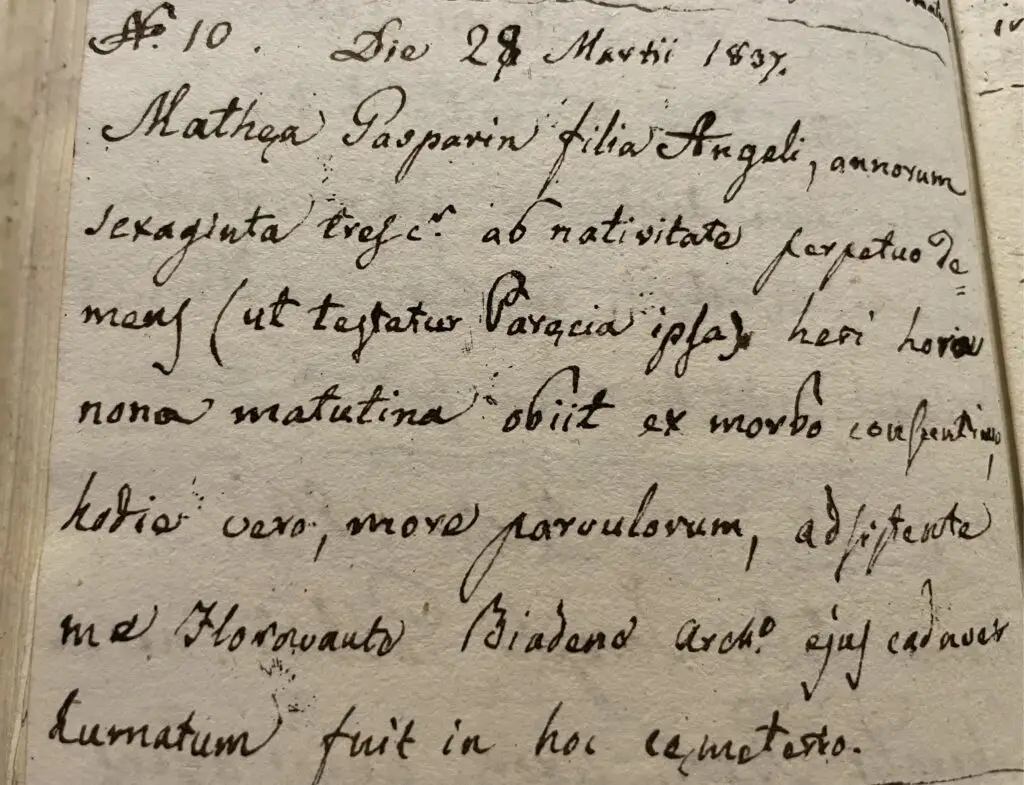 N.º 10. Die 28 Martii 1837.
Mathęa Gasparin filia Angeli, annorum
sexaginta tres c.r ab nativitate perpetuo de=
mens (ut testatur Paręcia ipsa) heri hora
nona matutina obiit ex morbo
hodie vero, more parvulorum, adsistente
me Biadene Arch.o ejus cadaver
humatum fuit in hoc cęmeterio.